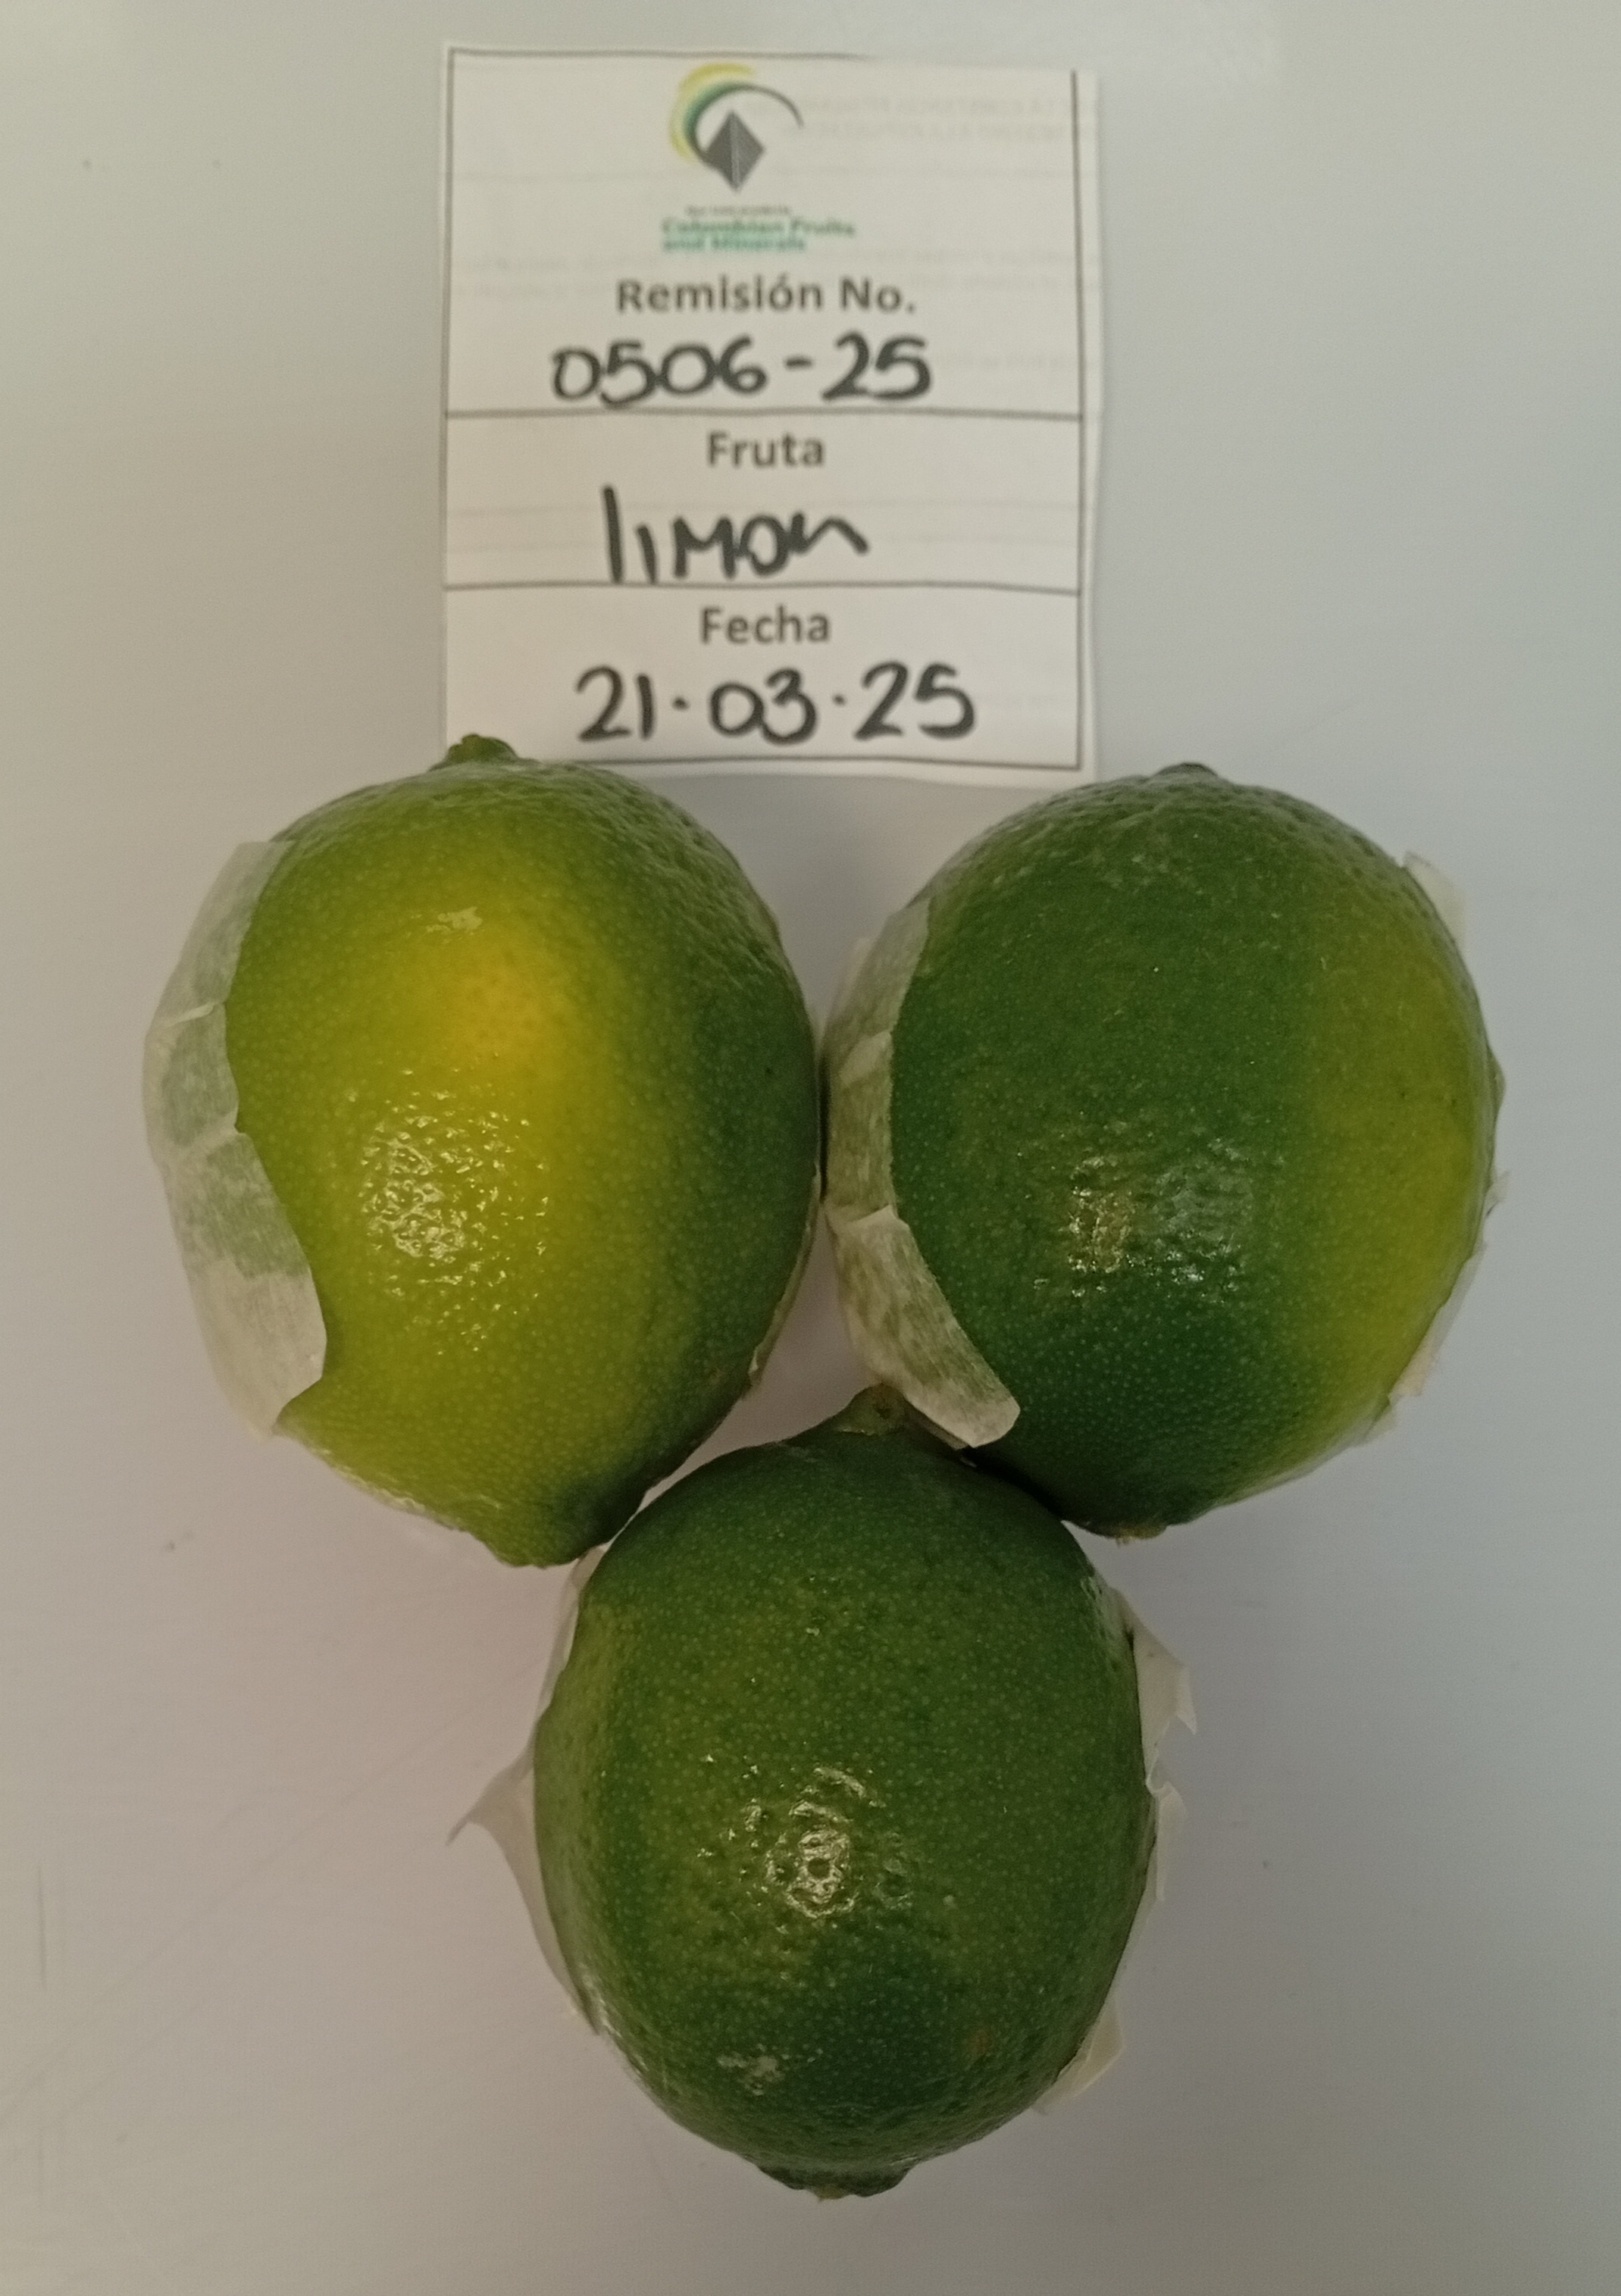 Colombian Fruits
and Minerals
Remisión No.
0506-25
Fruta
limon
Fecha
21·03·25